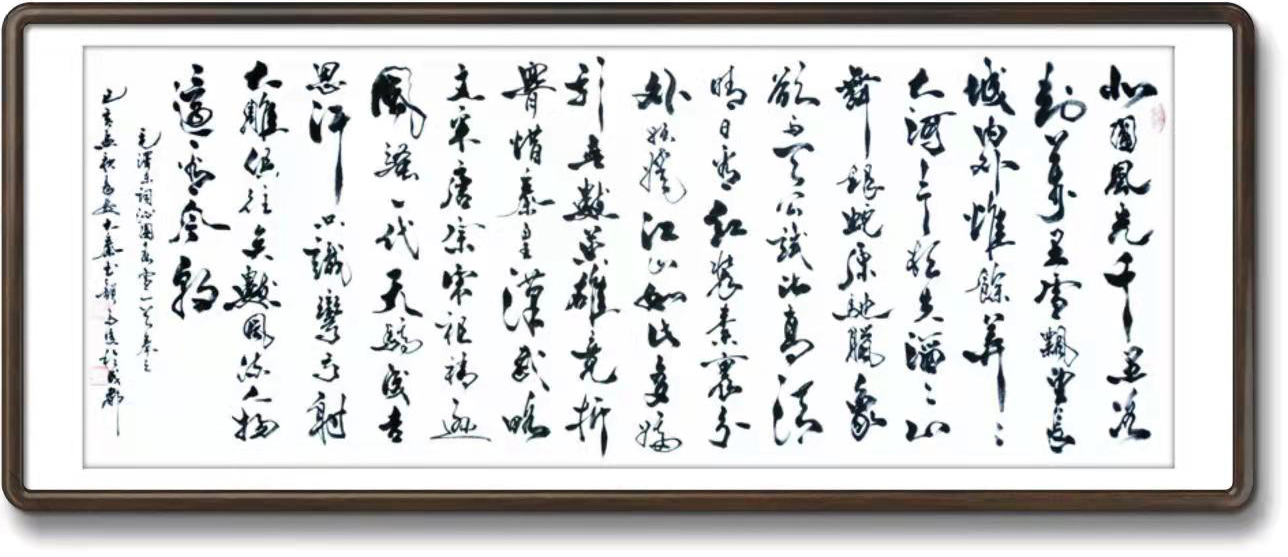 北國風光千里冰
封萬里雪飄望長
城內外惟餘莽〻
大河上下頓失滔〻山
舞銀蛇原馳臘象
欲與天公試比高須
晴日看紅裝素裹分
外妖嬈江山如此多嬌
引無數英雄竞折
腰惜秦皇漢武略
文采唐宗宋祖稍遜
風騷一代天驕成吉
思汗只識彎弓射
大雕俱往矣數風流人物
還看今朝
毛澤東詞沁園春雪一首
己亥 秋 於成都